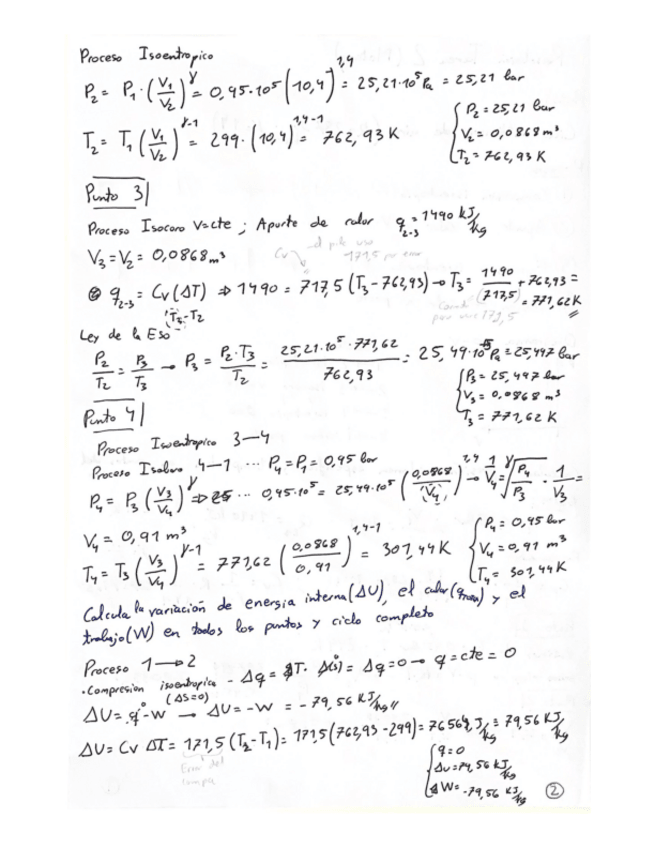 Proceso Isoentropico
P₂ = P₁ · (V₁/V₂)^γ = 0,95·10⁵ (10,4)^1,4 = 25,21·10⁵ Pa = 25,21 bar
T₂ = T₁ (V₁/V₂)^γ-1 = 299 · (10,4)^1,4-1 = 762,93 K
{ P₂ = 25,21 bar
V₂ = 0,0868 m³
T₂ = 762,93 K
Punto 3
Proceso Isocoro V=cte ; Aporte de calor q₂₋₃ = 1490 kJ/kg
V₃ = V₂ = 0,0868 m³
q₂₋₃ = Cv (ΔT) ⇒ 1490 = 717,5 (T₃ - 762,93) → T₃ = 1490/(717,5) + 762,93 = 771,62 K
T₃-T₂
Ley de la Eso
P₂/T₂ = P₃/T₃ → P₃ = P₂·T₃/T₂ = 25,21·10⁵ · 771,62 / 762,93 = 25,49·10⁵ Pa = 25,497 bar
{ P₃ = 25,497 bar
V₃ = 0,0868 m³
T₃ = 771,62 K
Punto 4
Proceso Isoentropico 3-4
Proceso Isobaro 4-1 ... P₄ = P₁ = 0,95 bar
P₄ = P₃ (V₃/V₄)^γ ⇒ ... 0,95·10⁵ = 25,49·10⁵ (0,0868/V₄)^1,4 → 1/V₄ = γ√(P₄/P₃) · 1/V₃ =
V₄ = 0,91 m³
T₄ = T₃ (V₃/V₄)^γ-1 = 771,62 (0,0868/0,91)^1,4-1 = 301,44 K
{ P₄ = 0,95 bar
V₄ = 0,91 m³
T₄ = 301,44 K
Calcula la variación de energia interna (ΔU), el calor y el
trabajo (W) en todos los puntos y ciclo completo
Proceso 1 → 2
· Compresion isoentropica (ΔS=0) - Δq = T · Δ(s)⁰ = Δq = 0 → q = cte = 0
ΔU = q⁰ - W → ΔU = -W = -79,56 kJ/kg
ΔU = Cv ΔT = 171,5 (T₂-T₁) = 171,5 (762,93 - 299) = 79,56 kJ/kg
Error del
{ q = 0
ΔU = 79,56 kJ/kg
ΔW = -79,56 kJ/kg
2